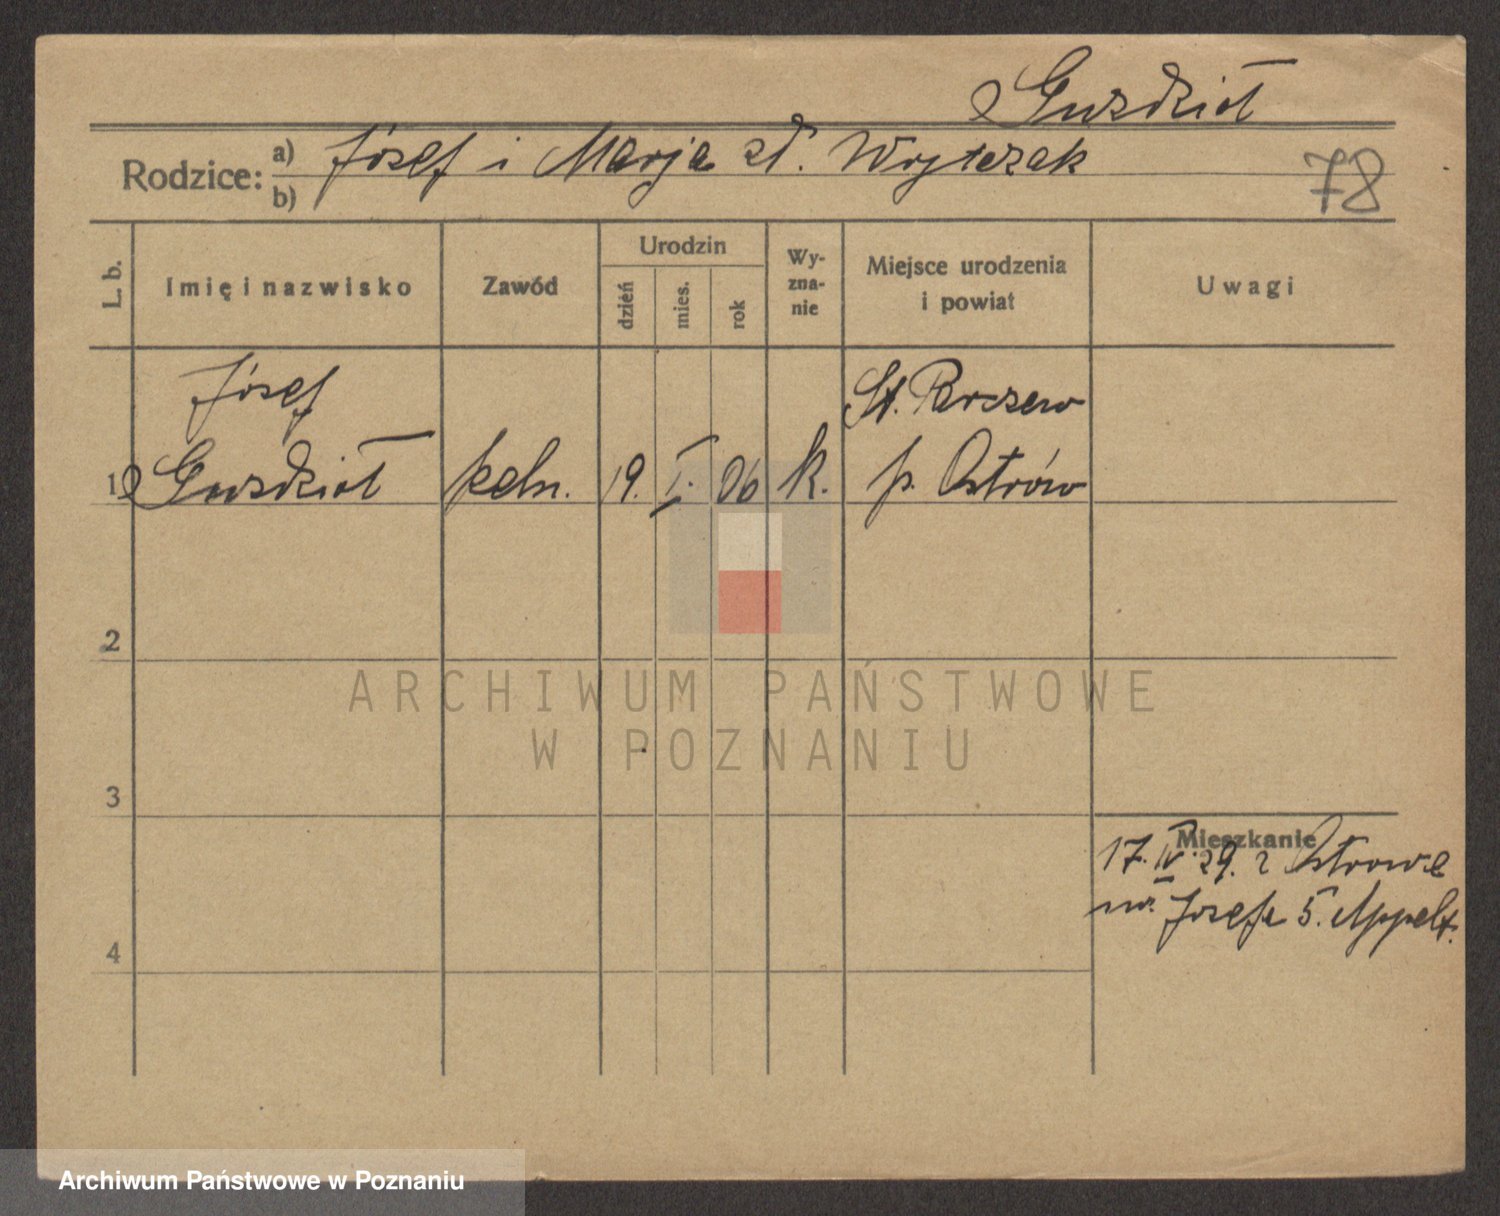 Guzdzioł
Rodzice:
a) Józef i Marja zd. Wojtczak
b)
78
L. b.
Imię i nazwisko
Zawód
Urodzin
dzień
mies.
rok
Wy-
zna-
nie
Miejsce urodzenia
i powiat
Uwagi
1
Józef
Keln.
19.
I.
06
k.
St. Parczew
p. Ostrów
2
ARCHIWUM PAŃSTWOWE
W POZNANIU
3
4
Mieszkanie
17. IV. 29. z Ostrowa
Józefa 5. Appelt.
Archiwum Państwowe w Poznaniu